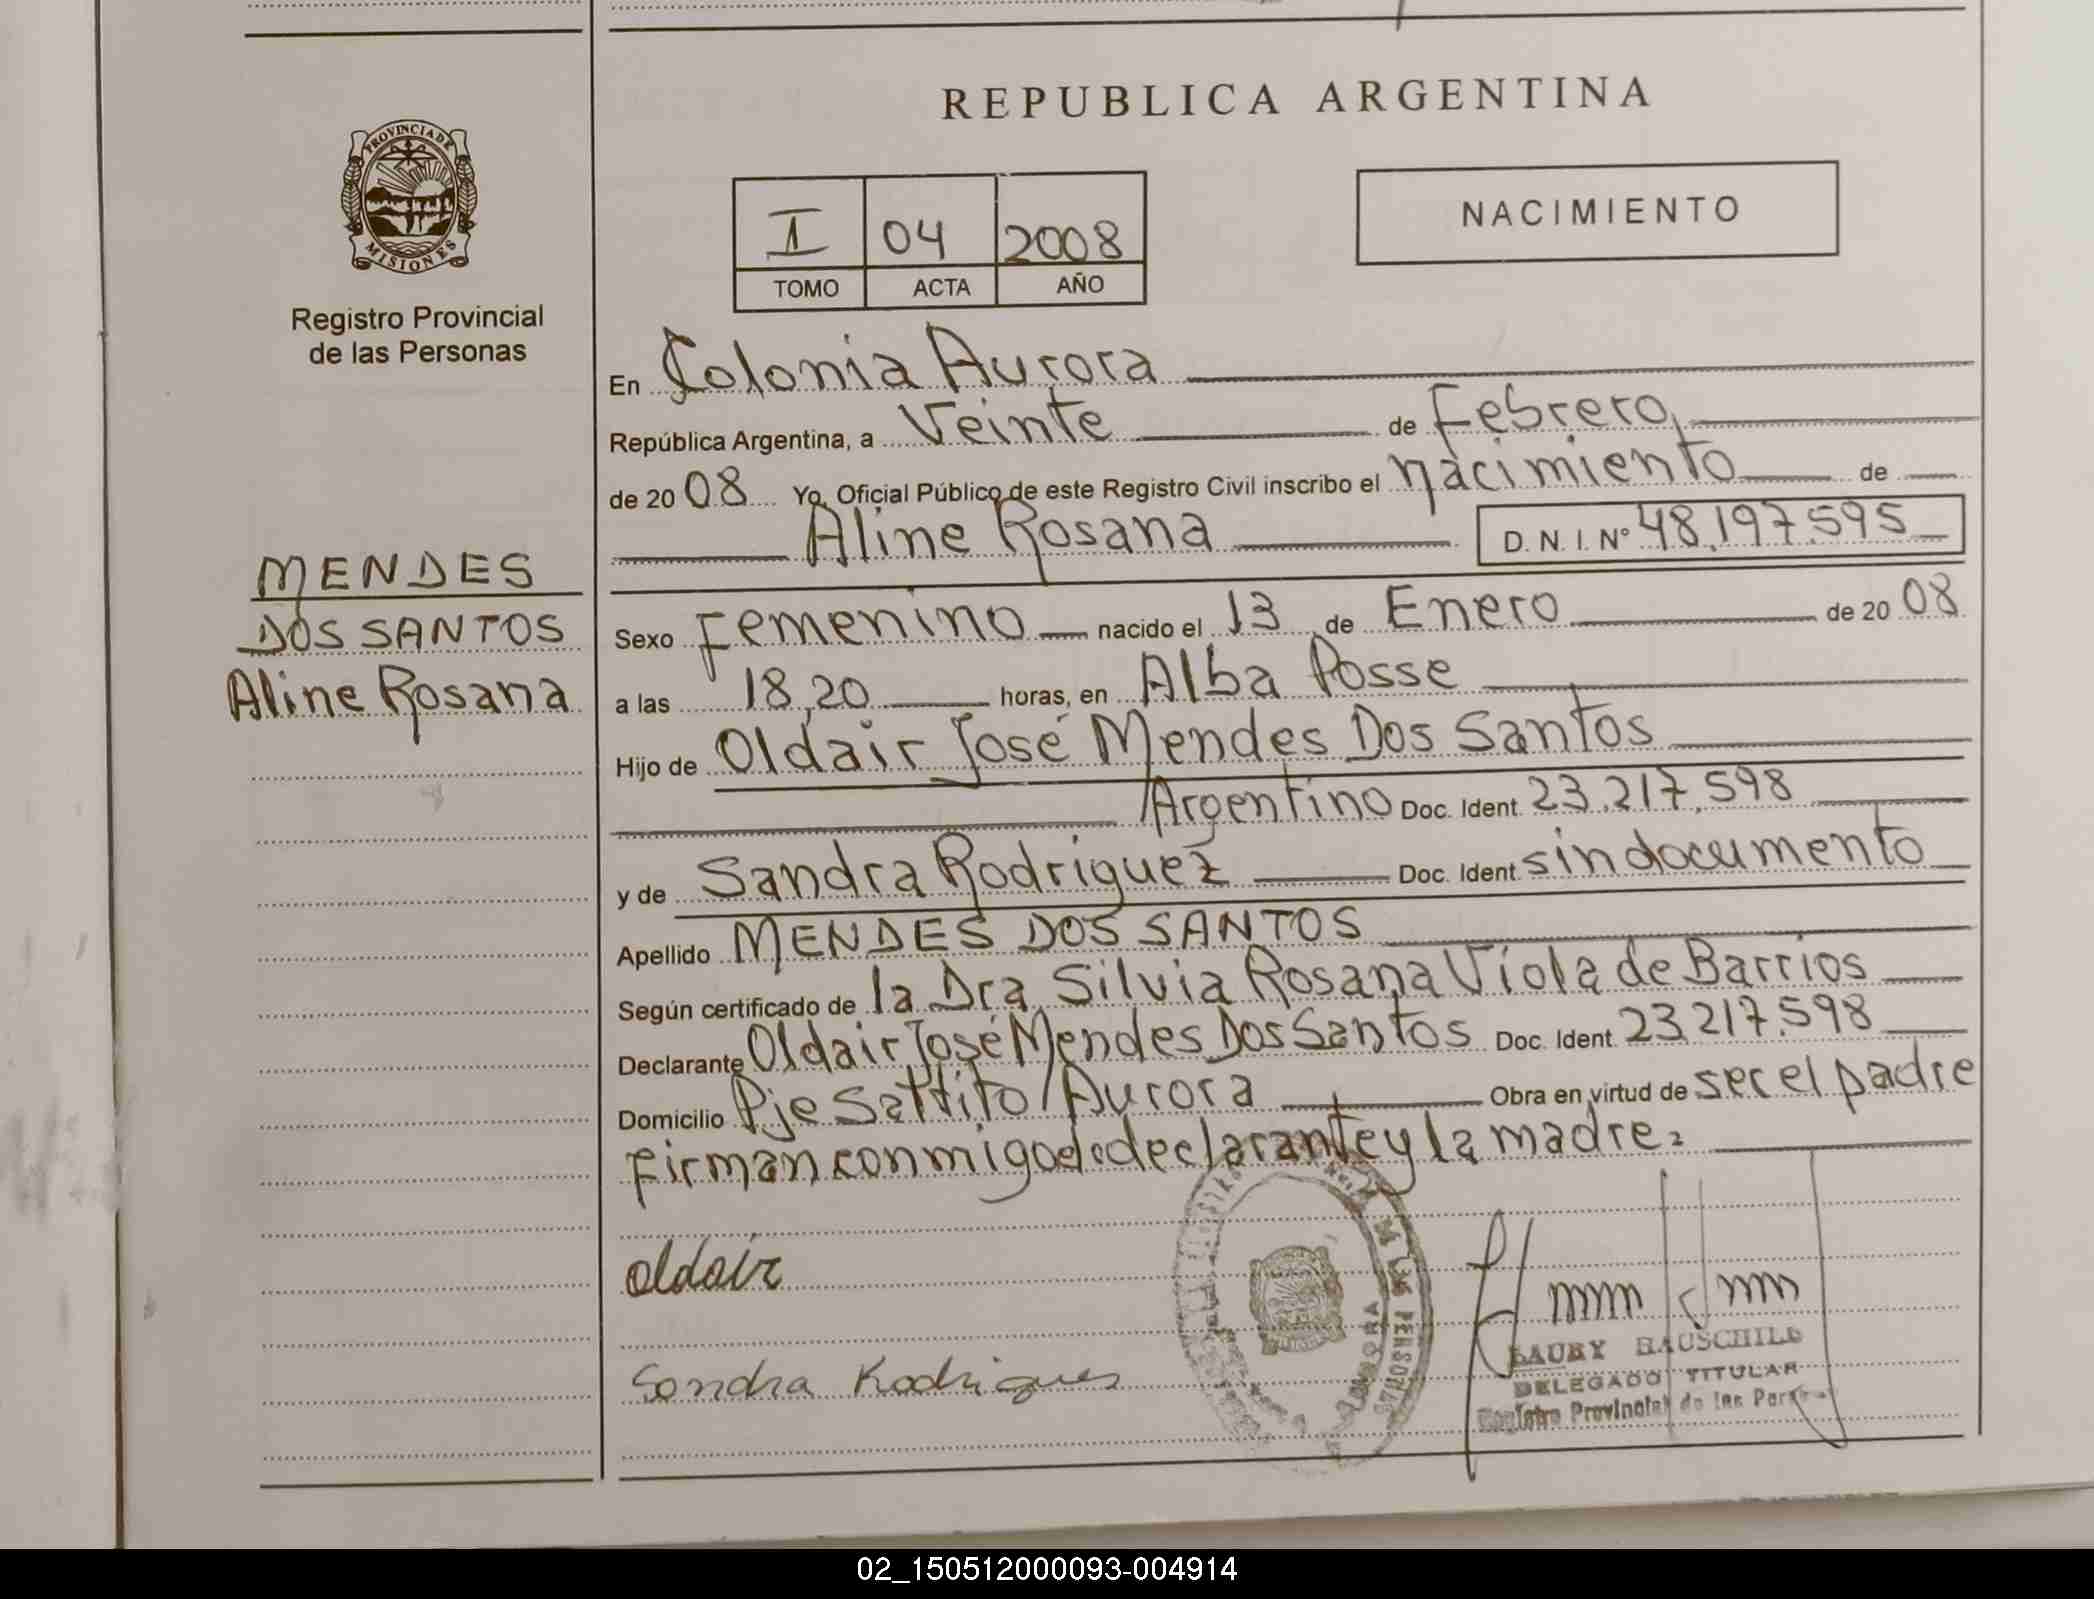 REPUBLICA ARGENTINA
PROVINCIA DE
MISIONES
Registro Provincial
de las Personas
I 04 2008
TOMO ACTA AÑO
NACIMIENTO
En Colonia Aurora
República Argentina, a Veinte de Febrero,
de 20 08 Yo, Oficial Público de este Registro Civil inscribo el nacimiento de
Aline Rosana D. N. I. Nº 48.197.595
MENDES
DOS SANTOS
Aline Rosana
Sexo Femenino nacido el 13 de Enero de 20 08
a las 18,20 horas, en Alba Posse
Hijo de Oldair José Mendes Dos Santos
Argentino Doc. Ident. 23.217.598
y de Sandra Rodriguez Doc. Ident. sin documento
Apellido MENDES DOS SANTOS
Según certificado de la Dra Silvia Rosana Viola de Barrios
Declarante Oldair José Mendes Dos Santos Doc. Ident. 23.217.598
Domicilio Pje Sattito/Aurora Obra en virtud de ser el padre
firman conmigo el declarante y la madre.
oldair
Sandra Rodrigues
HAUSCHILD
DELEGADO TITULAR
Registro Provincial de las
02_150512000093-004914